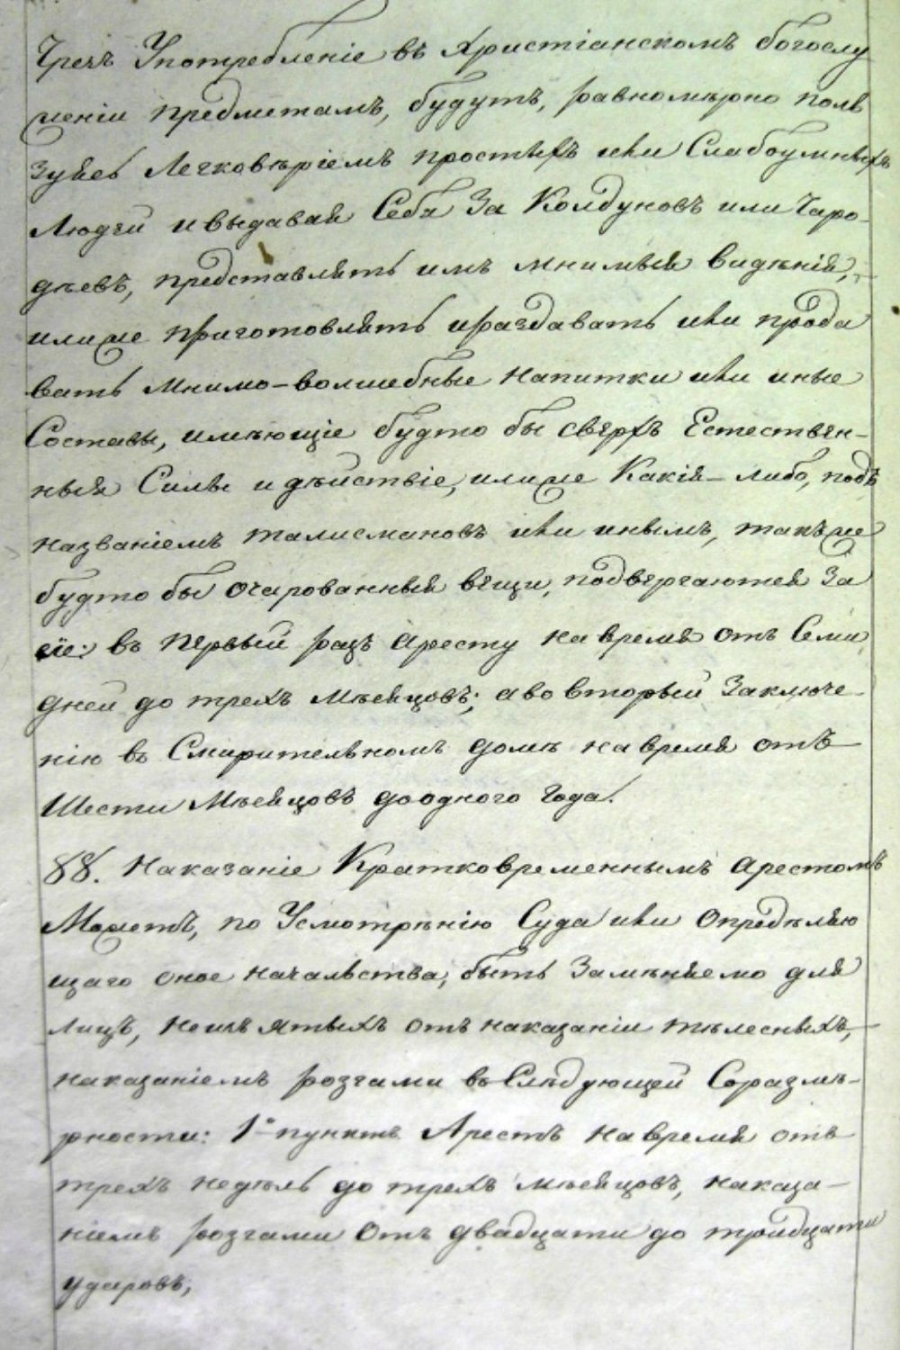 Чрезъ Употребленіе въ Христіанскомъ богослу
женіи предметамъ, будутъ, равномѣрно поль
зуясь Легковѣріемъ простыхъ или Слабоумныхъ
Людей и выдавая Себя За Колдуновъ или Чаро-
дѣевъ, представлять имъ мнимыя видѣнія,
или же приготовлять и раздавать или прода
вать Мнимо-волшебные Напитки или иные
Составы, имѣющіе будто бы сверхъ Естествен-
ныя Силы и дѣйствіе, или же Какія-либо, подъ
названіемъ талисмановъ или инымъ, также
будто бы очарованныя вещи, подвергаются За
сіе: въ первый разъ аресту на время отъ Семи
дней до трехъ Мѣсяцовъ; а во вторый Заключе-
нію въ Смирительномъ домѣ на время отъ
Шести Мѣсяцовъ до одного Года.
88. Наказаніе Кратковременнымъ арестомъ
Можетъ, по Усмотрѣнію Суда или Опредѣляю
щаго оное начальства, быть Замѣняемо для
Лицъ, неизъятыхъ отъ наказаніи тѣлесныхъ,
наказаніемъ розгами въ Слѣдующей Соразмѣ-
рности: 1й пунктъ Арестъ на время отъ
трехъ недѣль до трехъ мѣсяцовъ, наказа-
ніемъ розгами Отъ двадцати до тридцати
ударовъ,